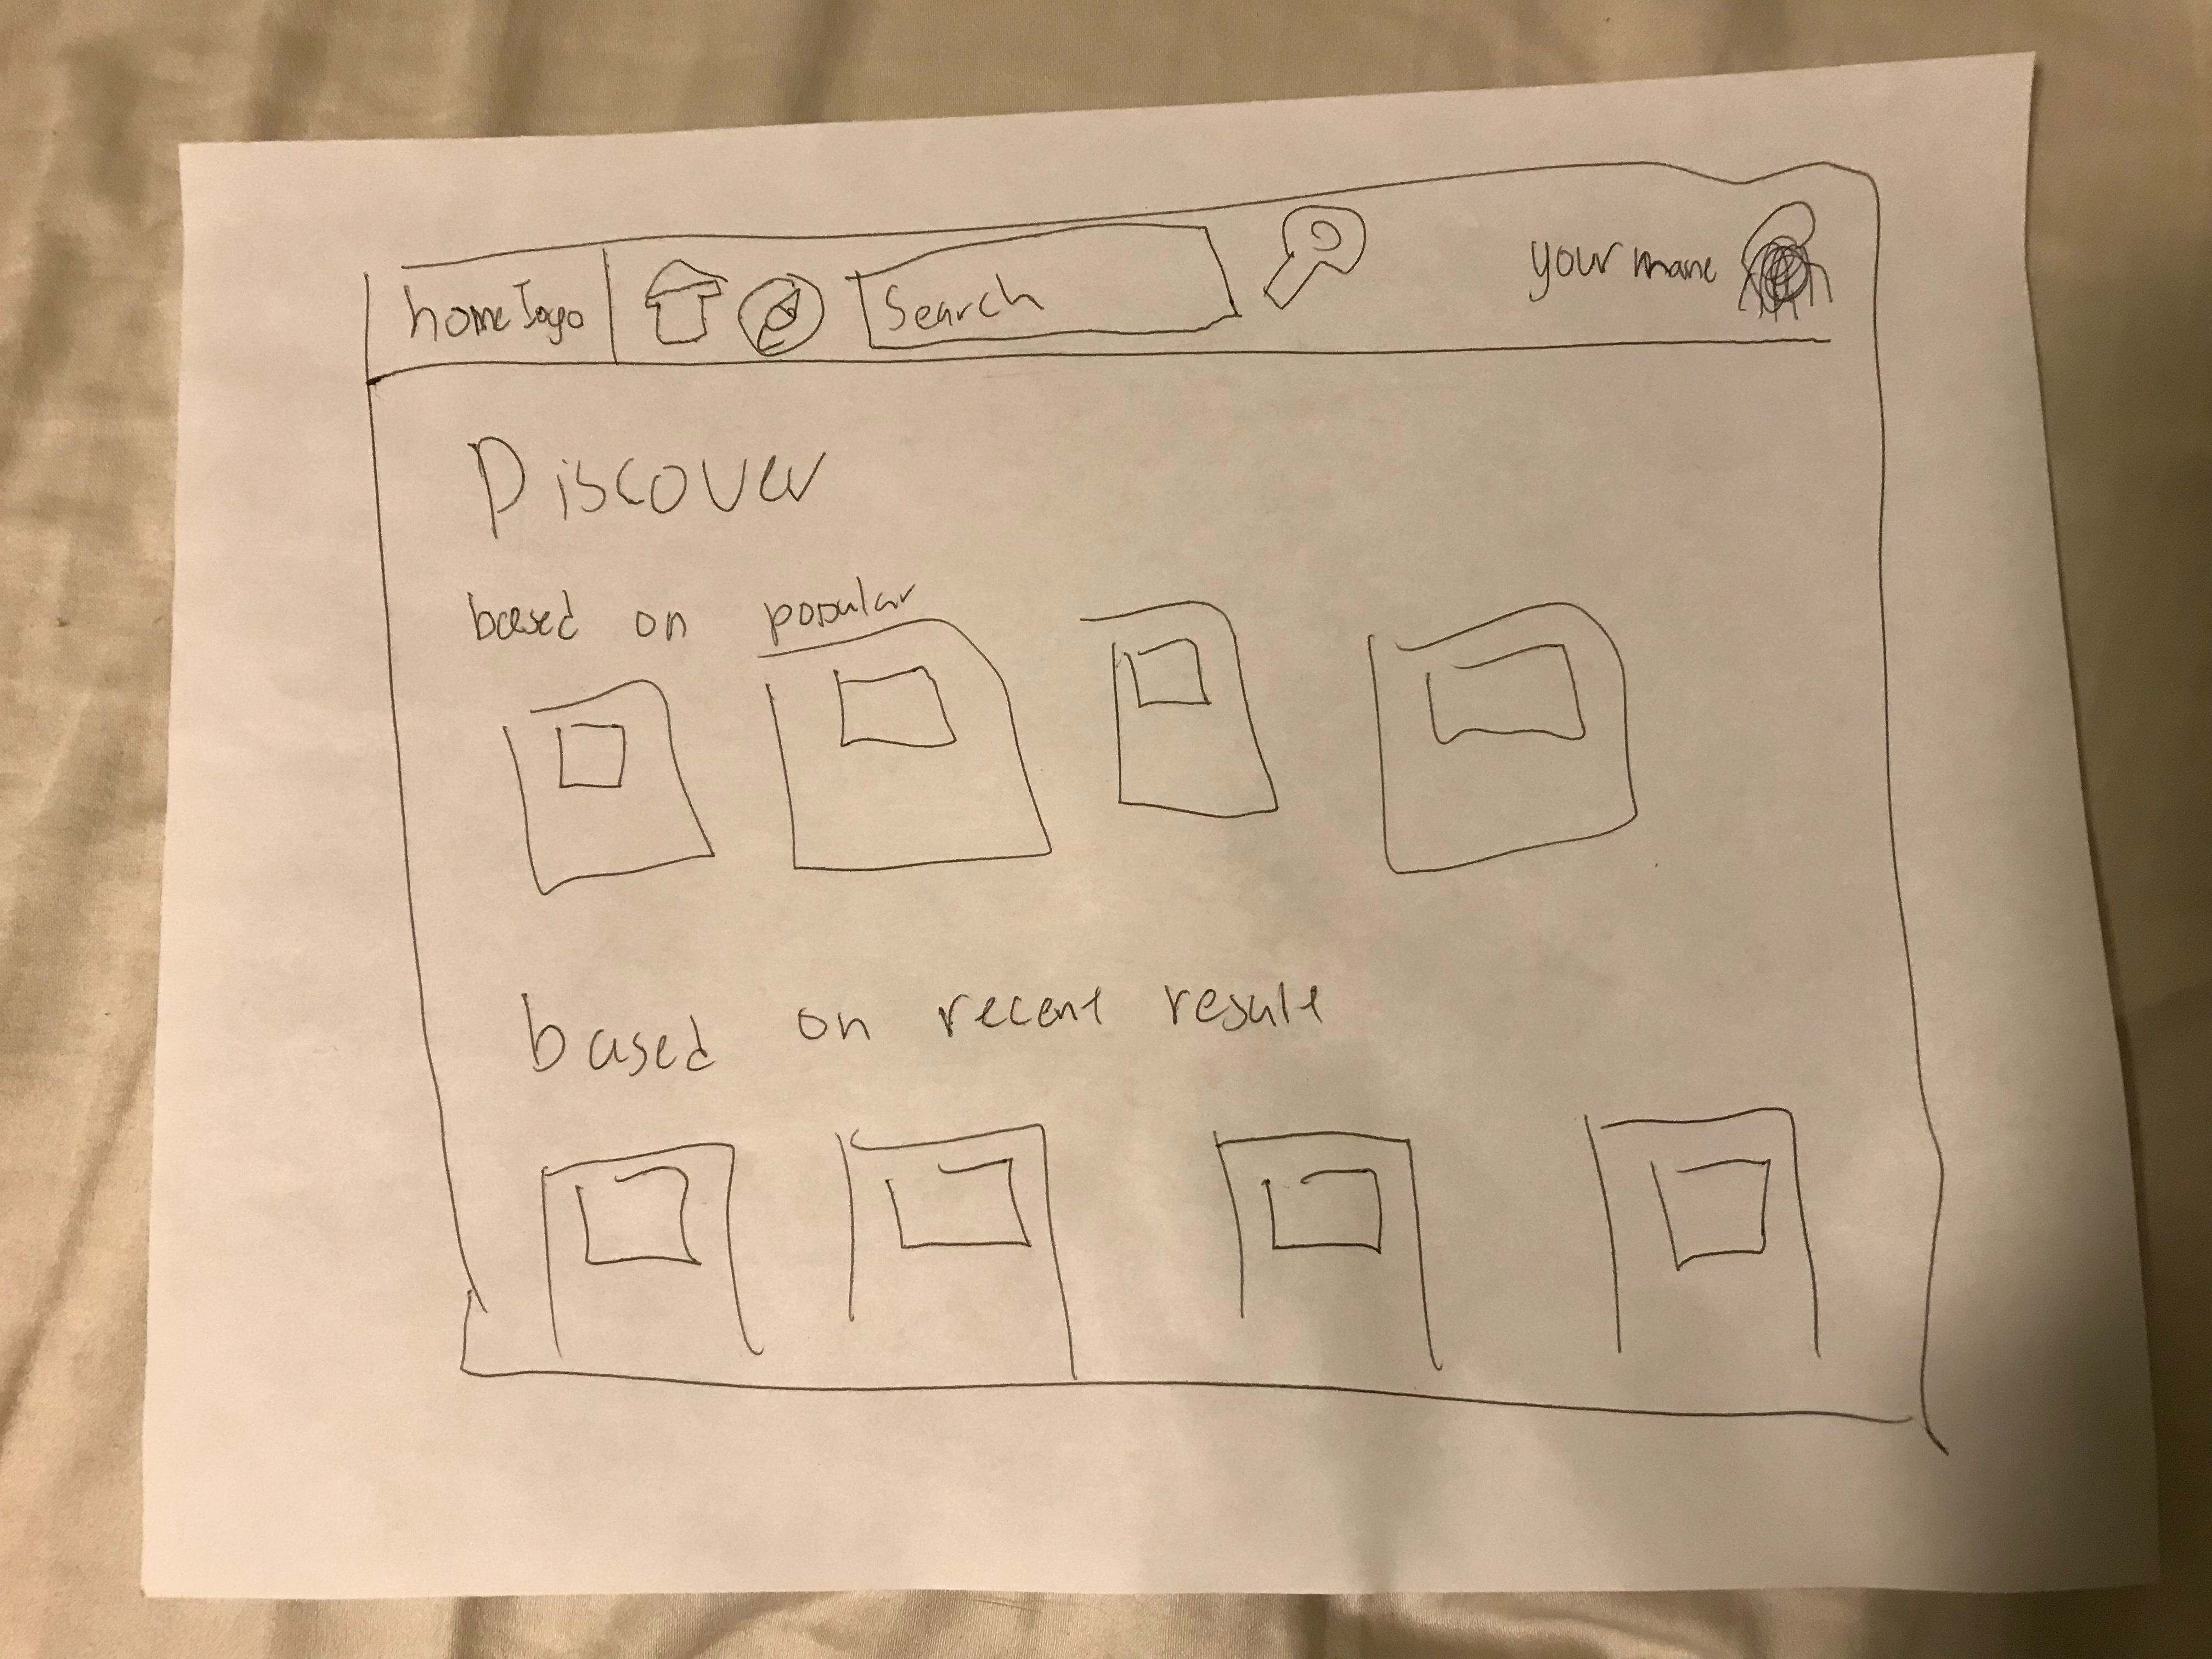 home logo
Search
your name
Discover
based on popular
based on recent result